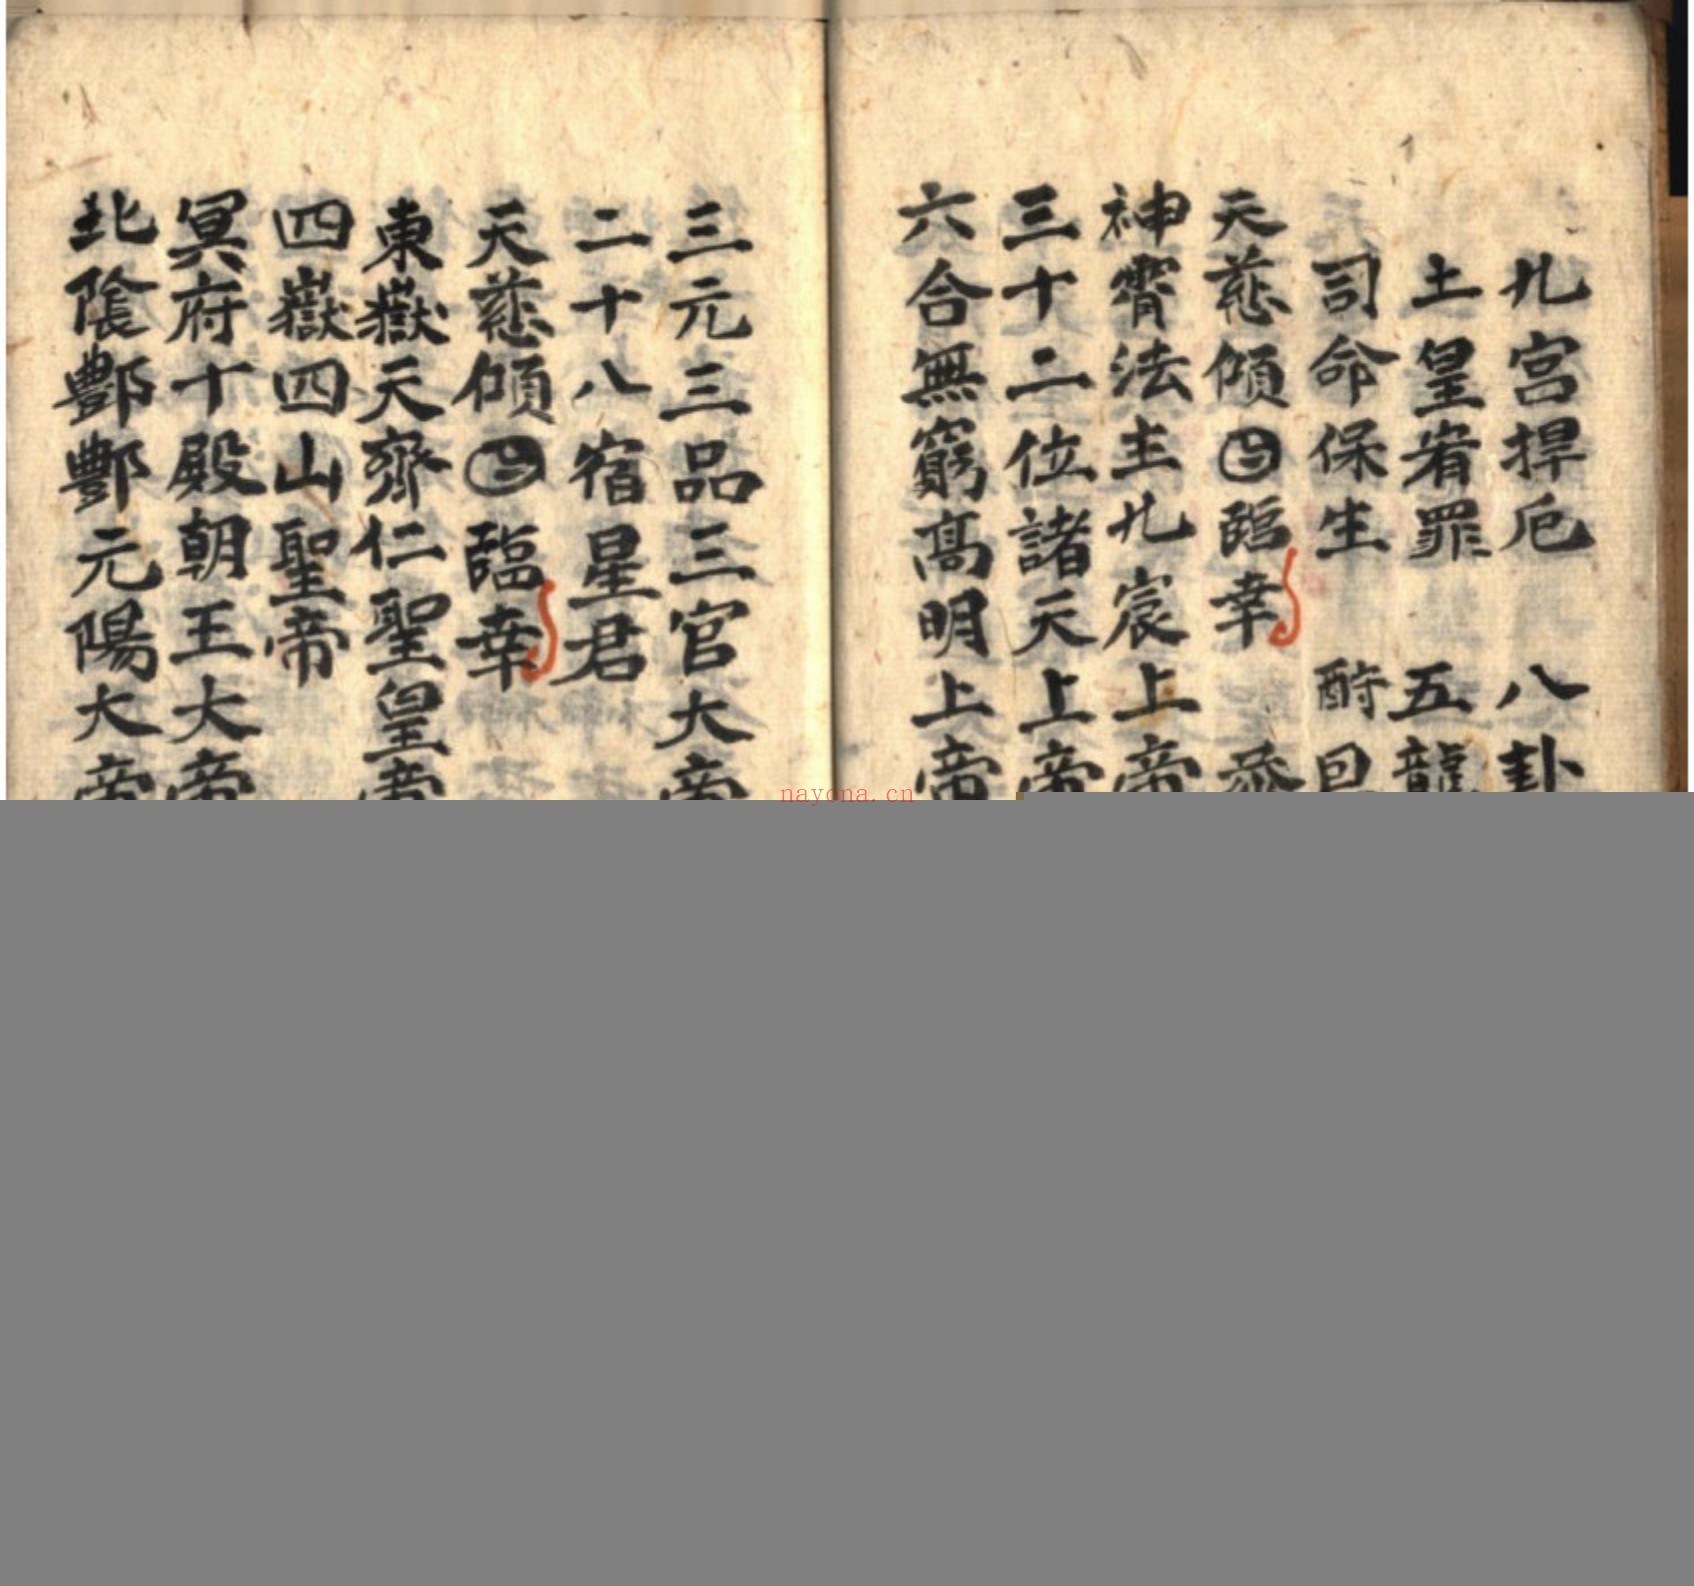 九宮捍厄 八卦
土皇宥罪 五龍
司命保生 酧
天慈傾㊂臨幸
神霄法主九宸上帝
三十二位諸天上帝
六合無窮高明上帝
三元三品三官大帝
二十八宿星君
天慈傾㊂臨幸
東嶽天齊仁聖皇帝
四嶽四山聖帝
冥府十殿朝王大帝
北陰酆酆元陽大帝
nayona.cn